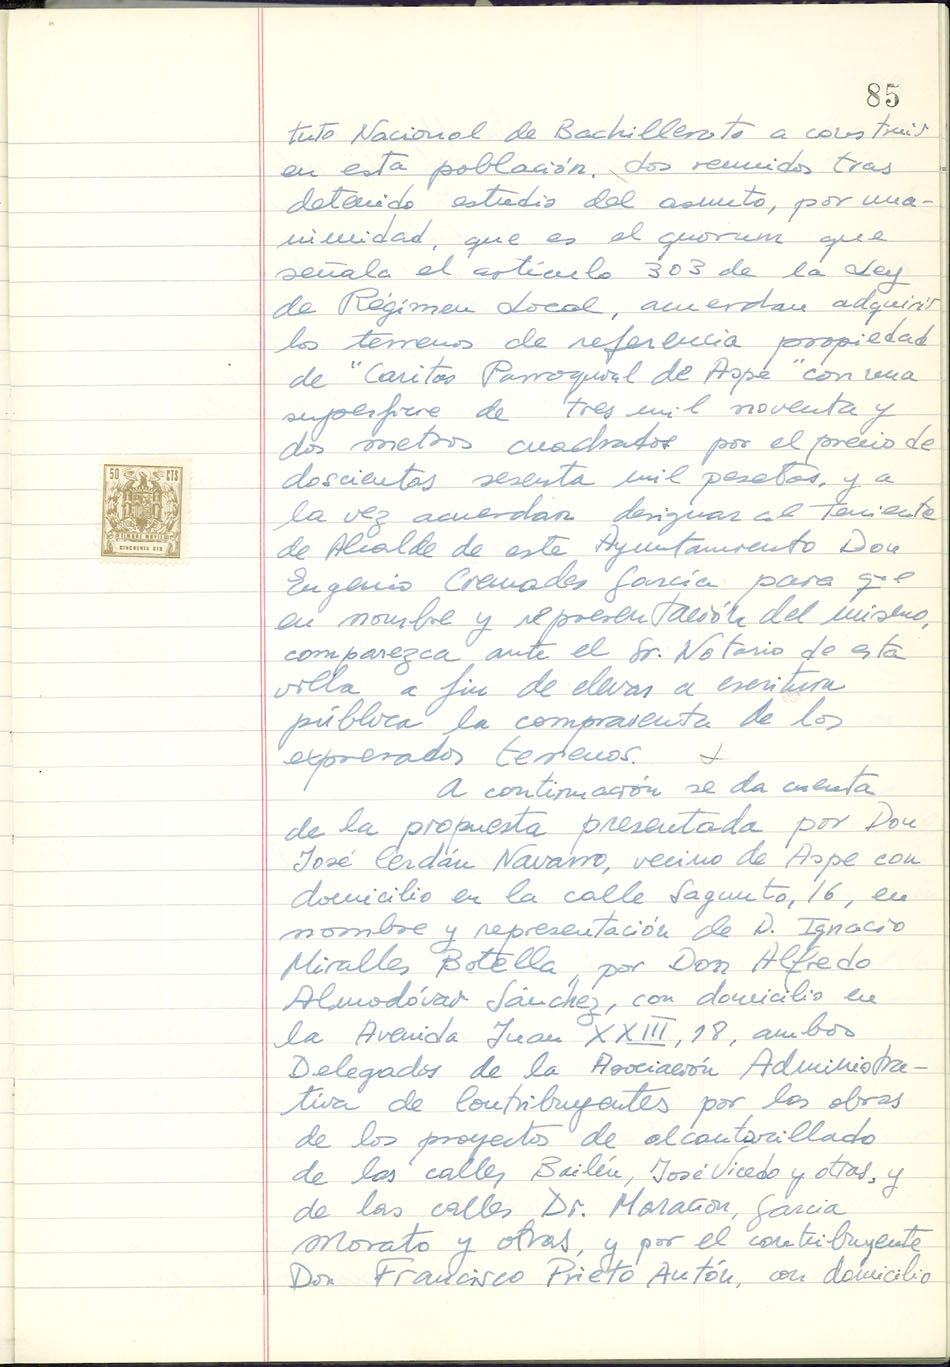 85
tuto Nacional de Bachillerato a construir
en esta población. Los reunidos tras
detenido estudio del asunto, por una-
nimidad, que es el quorum que
señala el artículo 303 de la Ley
de Régimen Local, acuerdan adquirir
los terrenos de referencia propiedad
de "Caritas Parroquial de Aspe" con una
superficie de tres mil noventa y
dos metros cuadrados por el precio de
doscientas sesenta mil pesetas, y a
la vez acuerdan designar al Teniente
de Alcalde de este Ayuntamiento Don
Eugenio Cremades García para que
en nombre y representación del mismo,
comparezca ante el Sr. Notario de esta
villa a fin de elevar a escritura
pública la compraventa de los
expresados terrenos.
A continuación se da cuenta
de la propuesta presentada por Don
José Cerdán Navarro, vecino de Aspe con
domicilio en la calle Sagunto, 16, en
nombre y representación de D. Ignacio
Miralles Botella, por Don Alfredo
Almodóvar Sánchez, con domicilio en
la Avenida Juan XXIII, 18, ambos
Delegados de la Asociación Administra-
tiva de Contribuyentes por las obras
de los proyectos de alcantarillado
de las calles Bailén, José Vicedo y otras, y
de las calles Dr. Marañon, Garcia
Morato y otras, y por el contribuyente
Don Francisco Prieto Antón, con domicilio
50 CTS
TIMBRE MOVIL
CINCUENTA CTS